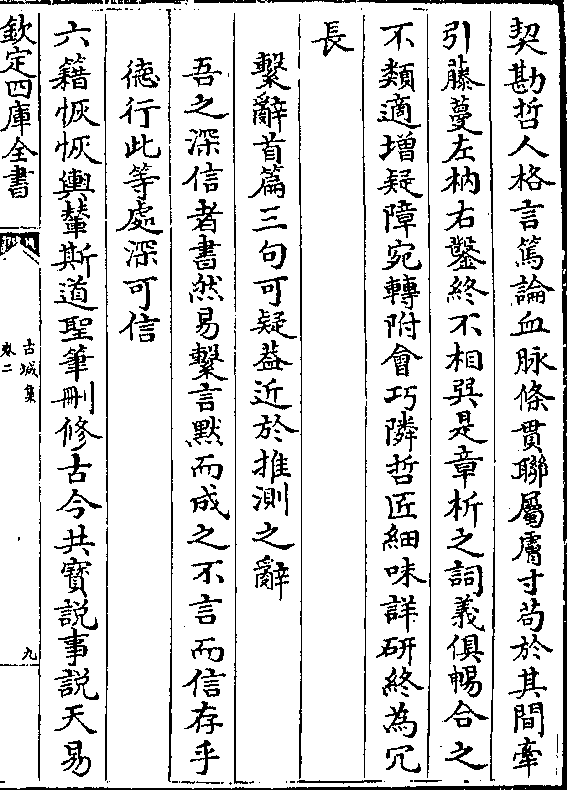 契勘哲人格言篤論血脉條貫聯屬膚寸苟於其間牽
引藤蔓左枘右鑿終不相與是章析之詞義俱暢合之
不類適增疑障宛轉附會巧隣哲匠細味詳研終為冗
長
繫辭首篇三句可疑葢近於推測之辭
吾之深信者書然易繫言默而成之不言而信存乎
德行此等處深可信
六籍恢恢輿輦斯道聖筆刪修古今共寳説事説天易
欽定四庫全書
古城集
卷二
九